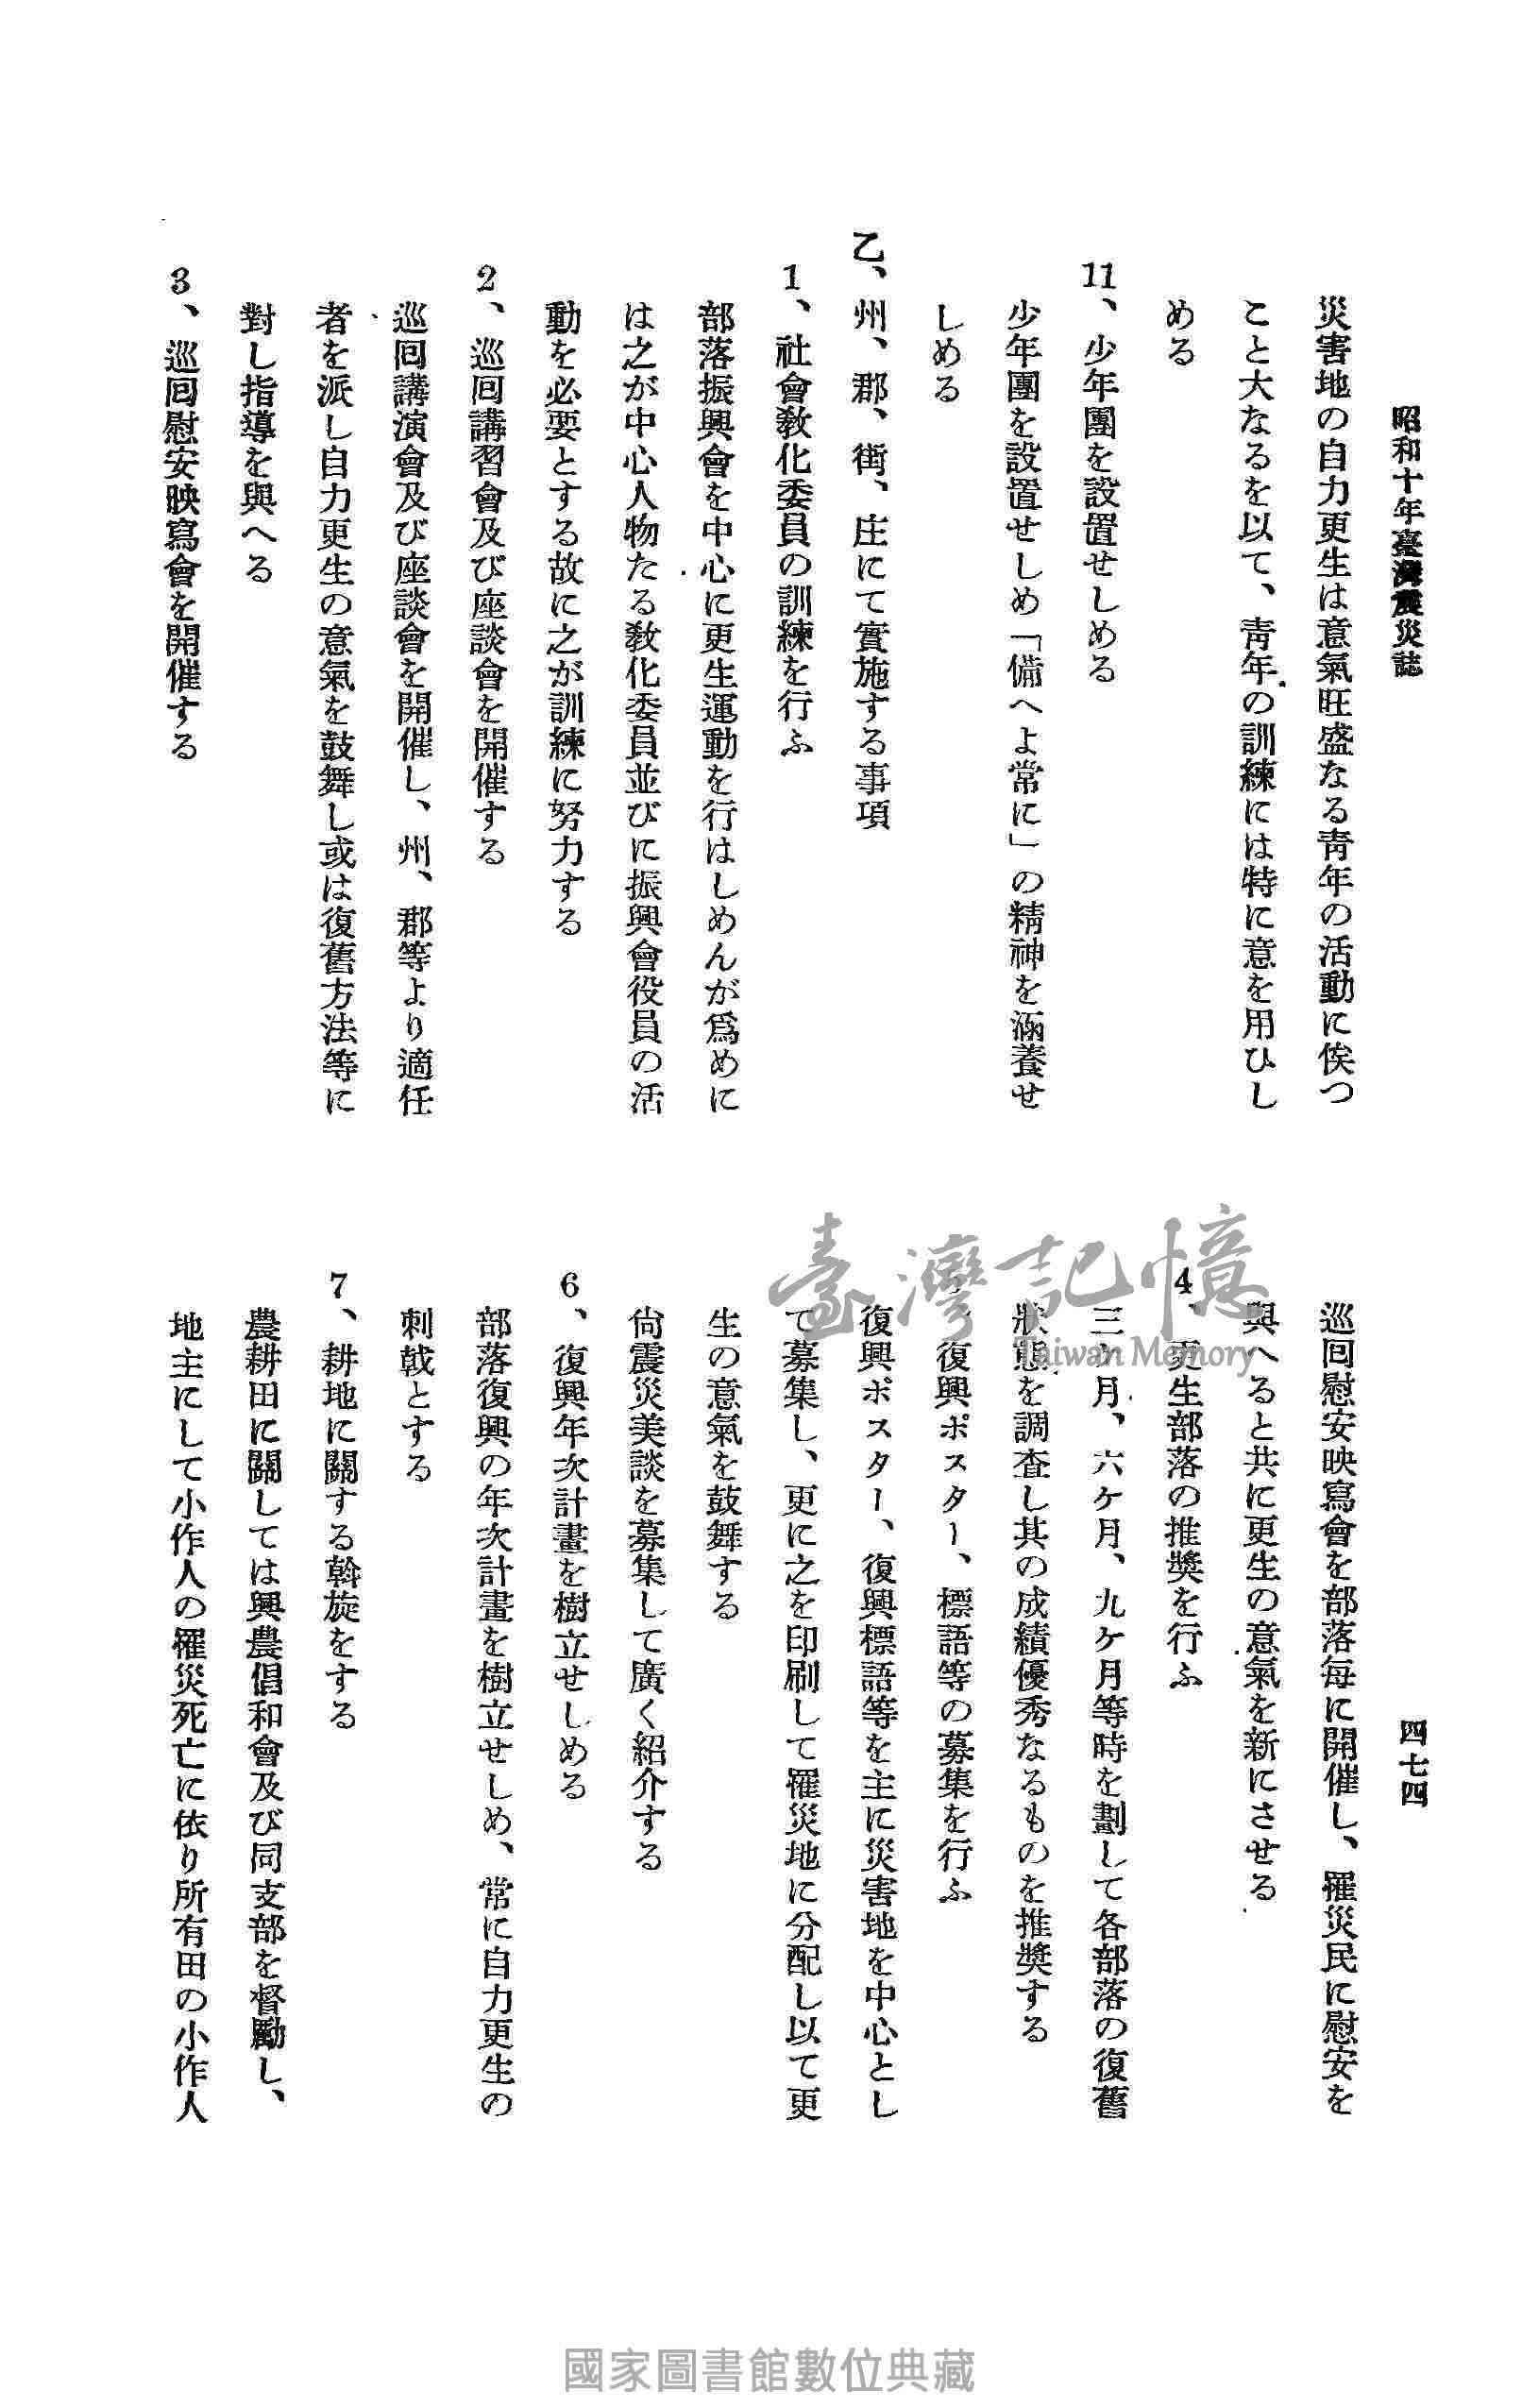 昭和十年臺灣震災誌
四七四
災害地の自力更生は意氣旺盛なる靑年の活動に俟つ
こと大なるを以て、靑年の訓練には特に意を用ひし
める
11、少年團を設置せしめる
少年團を設置せしめ「備へよ常に」の精神を涵養せ
しめる
乙、州、郡、街、庄にて實施する事項
1、社會敎化委員の訓練を行ふ
部落振興會を中心に更生運動を行はしめんが爲めに
は之が中心人物たる敎化委員並びに振興會役員の活
動を必要とする故に之が訓練に努力する
2、巡回講習會及び座談會を開催する
巡回講演會及び座談會を開催し、州、郡等より適任
者を派し自力更生の意氣を鼓舞し或は復舊方法等に
對し指導を與へる
3、巡回慰安映寫會を開催する
巡回慰安映寫會を部落每に開催し、罹災民に慰安を
與へると共に更生の意氣を新にさせる
4、更生部落の推奬を行ふ
三ケ月、六ケ月、九ケ月等時を劃して各部落の復舊
狀態を調査し其の成績優秀なるものを推奬する
復興ポスター、標語等の募集を行ふ
復興ポスター、復興標語等を主に災害地を中心とし
て募集し、更に之を印刷して罹災地に分配し以て更
生の意氣を鼓舞する
尙震災美談を募集して廣く紹介する
6、復興年次計畫を樹立せしめる
部落復興の年次計畫を樹立せしめ、常に自力更生の
刺戟とする
7、耕地に關する斡旋をする
農耕田に關しては興農倡和會及び同支部を督勵し、
地主にして小作人の罹災死亡に依り所有田の小作人
臺灣記憶
Taiwan Memory
國家圖書館數位典藏